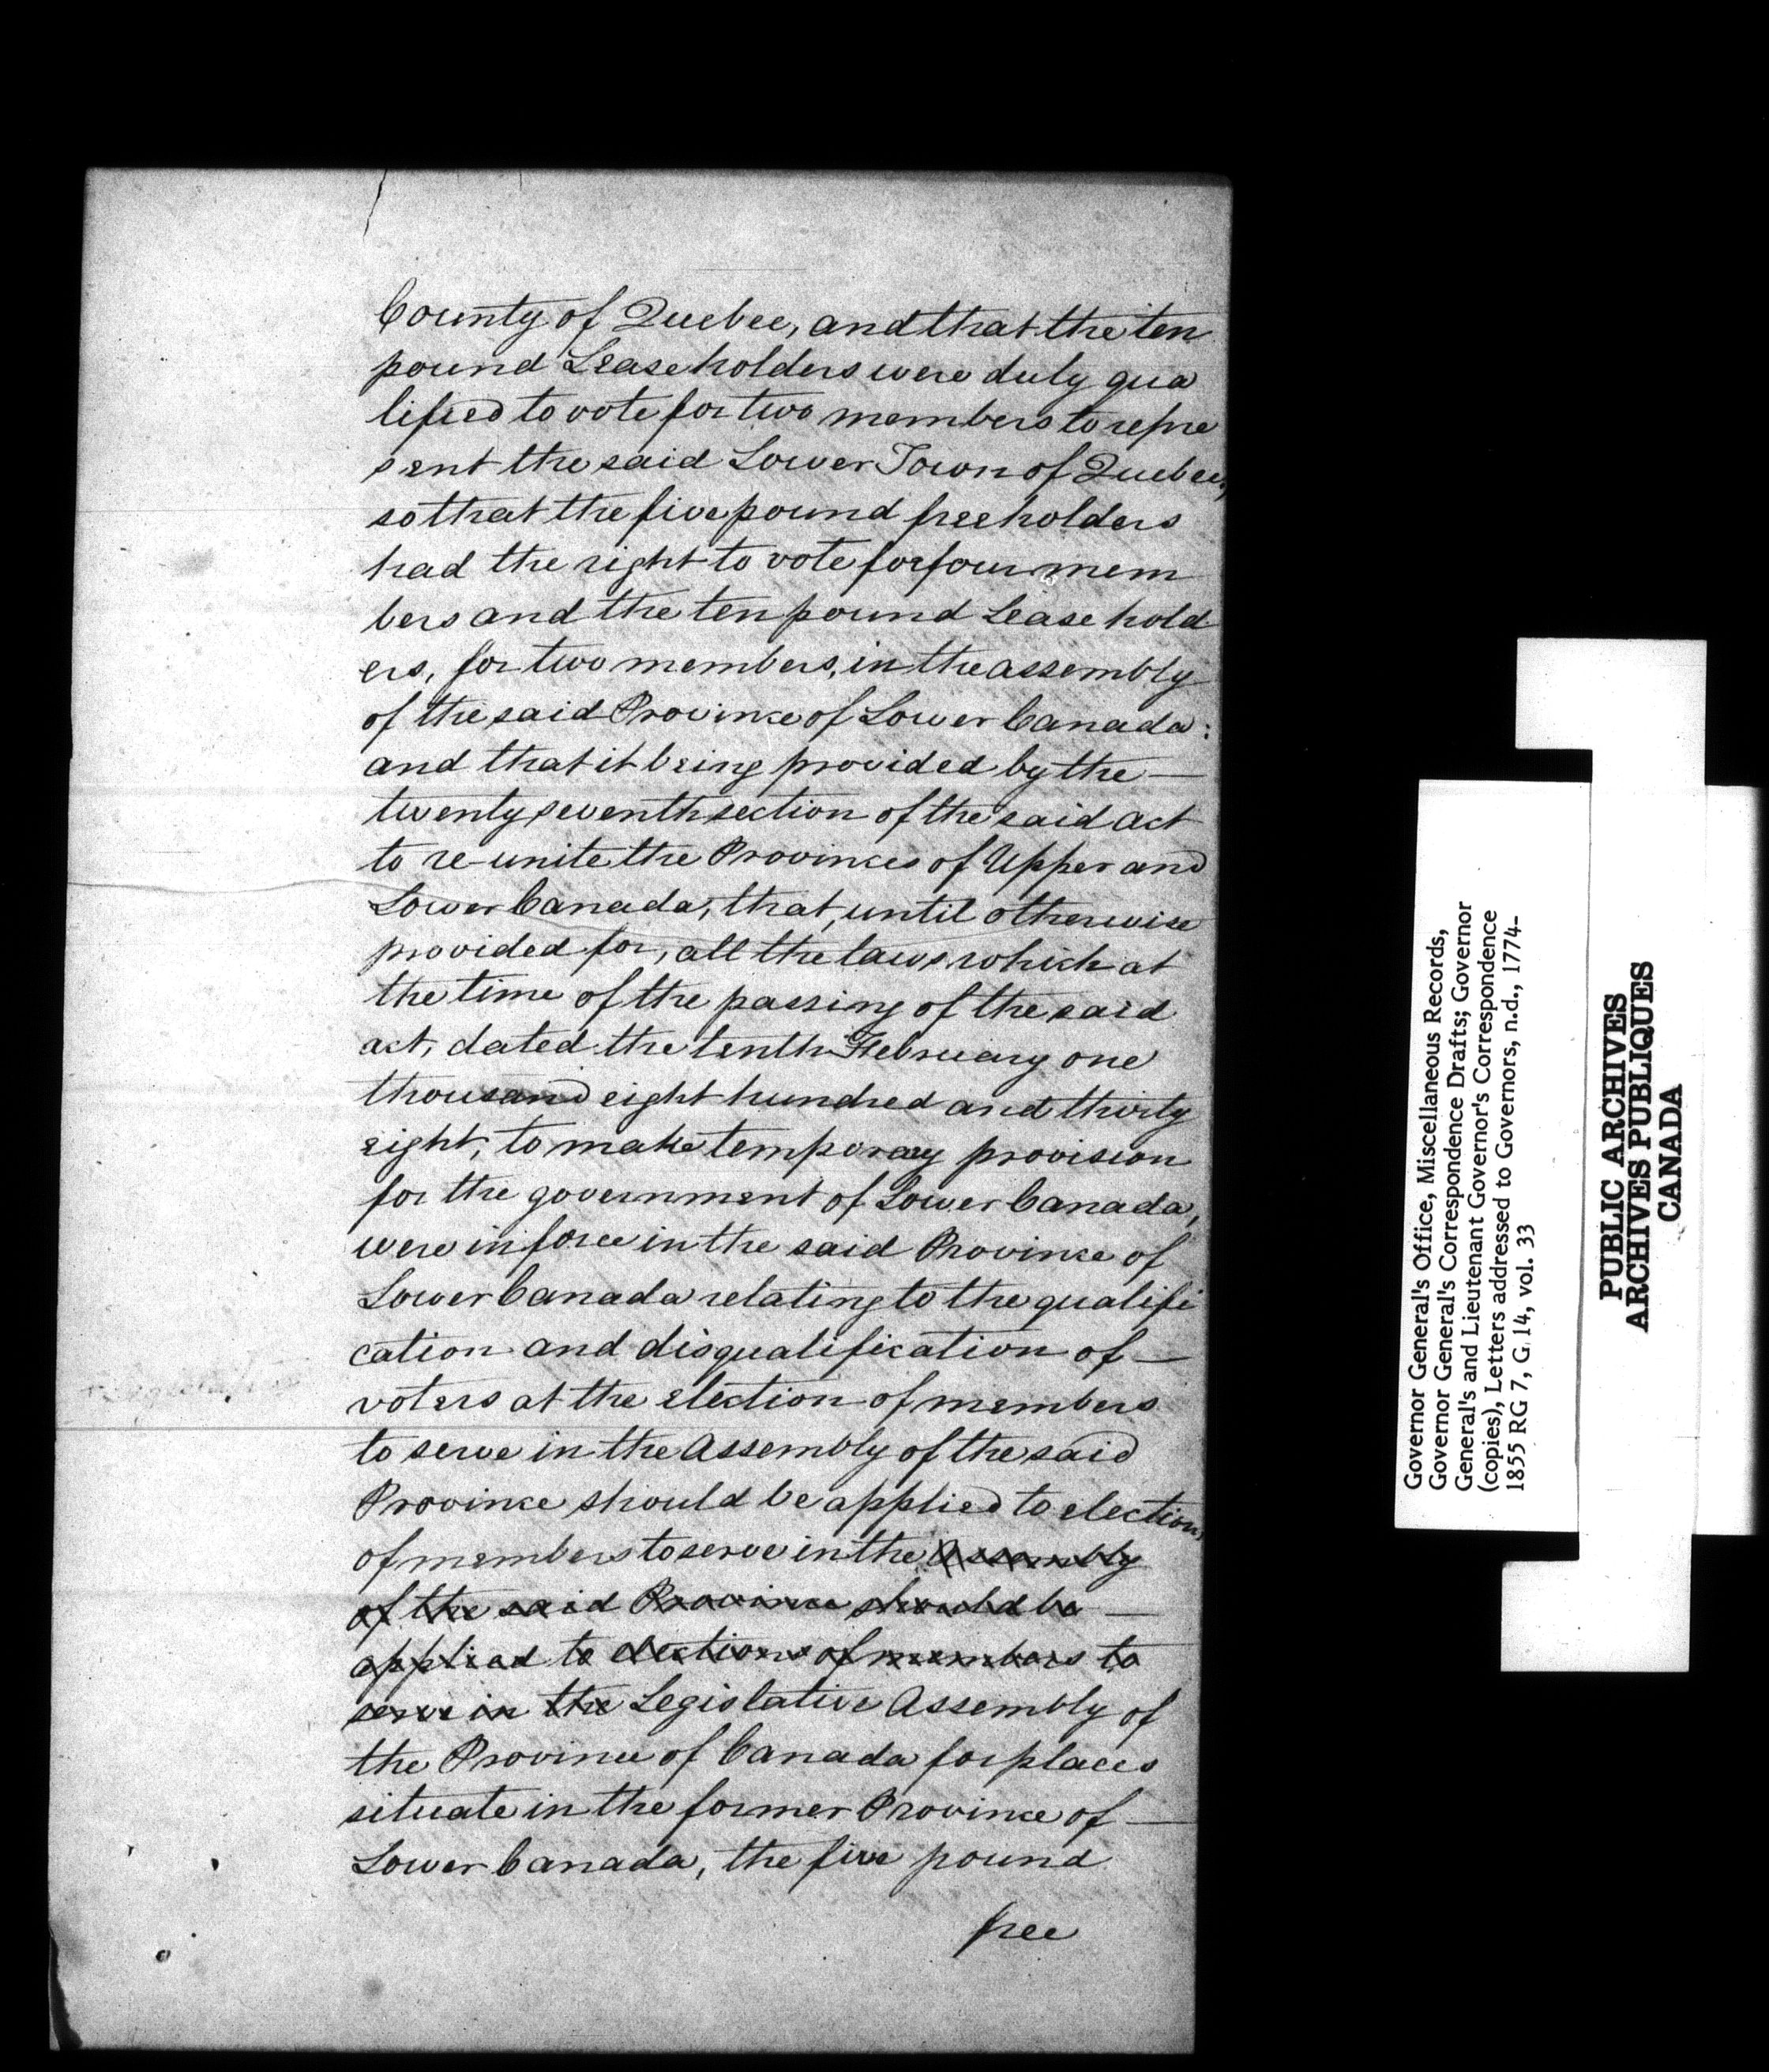 County of Quebec, and that the ten
pound Leaseholders were duly qua
lified to vote for two members to repre
sent the said Lower Town of Quebec,
so that the five pound freeholders
had the right to vote for four mem
bers and the ten pound Lease hold
ers, for two members, in the assembly
of the said Province of Lower Canada:
and that it being provided by the —
twenty seventh section of the said act
to re-unite the Provinces of Upper and
Lower Canada, that, until otherwise
provided for, all the laws which at
the time of the passing of the said
act, dated the tenth February one
thousand eight hundred and thirty
eight, to make temporary provision
for the government of Lower Canada,
were in force in the said Province of
Lower Canada relating to the qualifi
cation and disqualification of —
voters at the election of members
to serve in the Assembly of the said
Province should be applied to elections
of members to serve in the Assembly
of the said Province should be —
applied to elections of members to
serve in the Legislative Assembly of
the Province of Canada for places
situate in the former Province of —
Lower Canada, the five pound
free
Governor General's Office, Miscellaneous Records,
Governor General's Correspondence Drafts; Governor
General's and Lieutenant Governor's Correspondence
(copies), Letters addressed to Governors, n.d., 1774-
1855 RG 7, G 14, vol. 33
PUBLIC ARCHIVES
ARCHIVES PUBLIQUES
CANADA